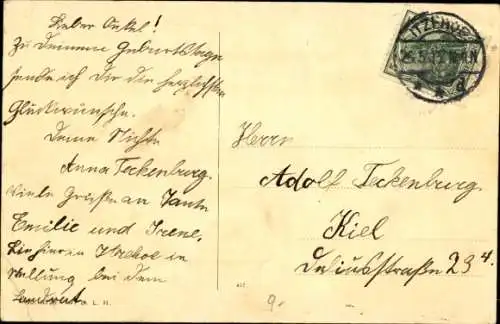 Lieber Onkel!
Zu Deinem Geburtstage
sende ich Dir die herzlichsten
Glückwünsche.
Deine Nichte
Anna Teckenburg.
Viele Grüße an Tante
Emilie und Irene.
Bin hier in Itzehoe in
Stellung bei dem
Landrat
ITZEHOE
Herrn
Adolf Teckenburg.
Kiel
Deliusstraße 23 4.
9.